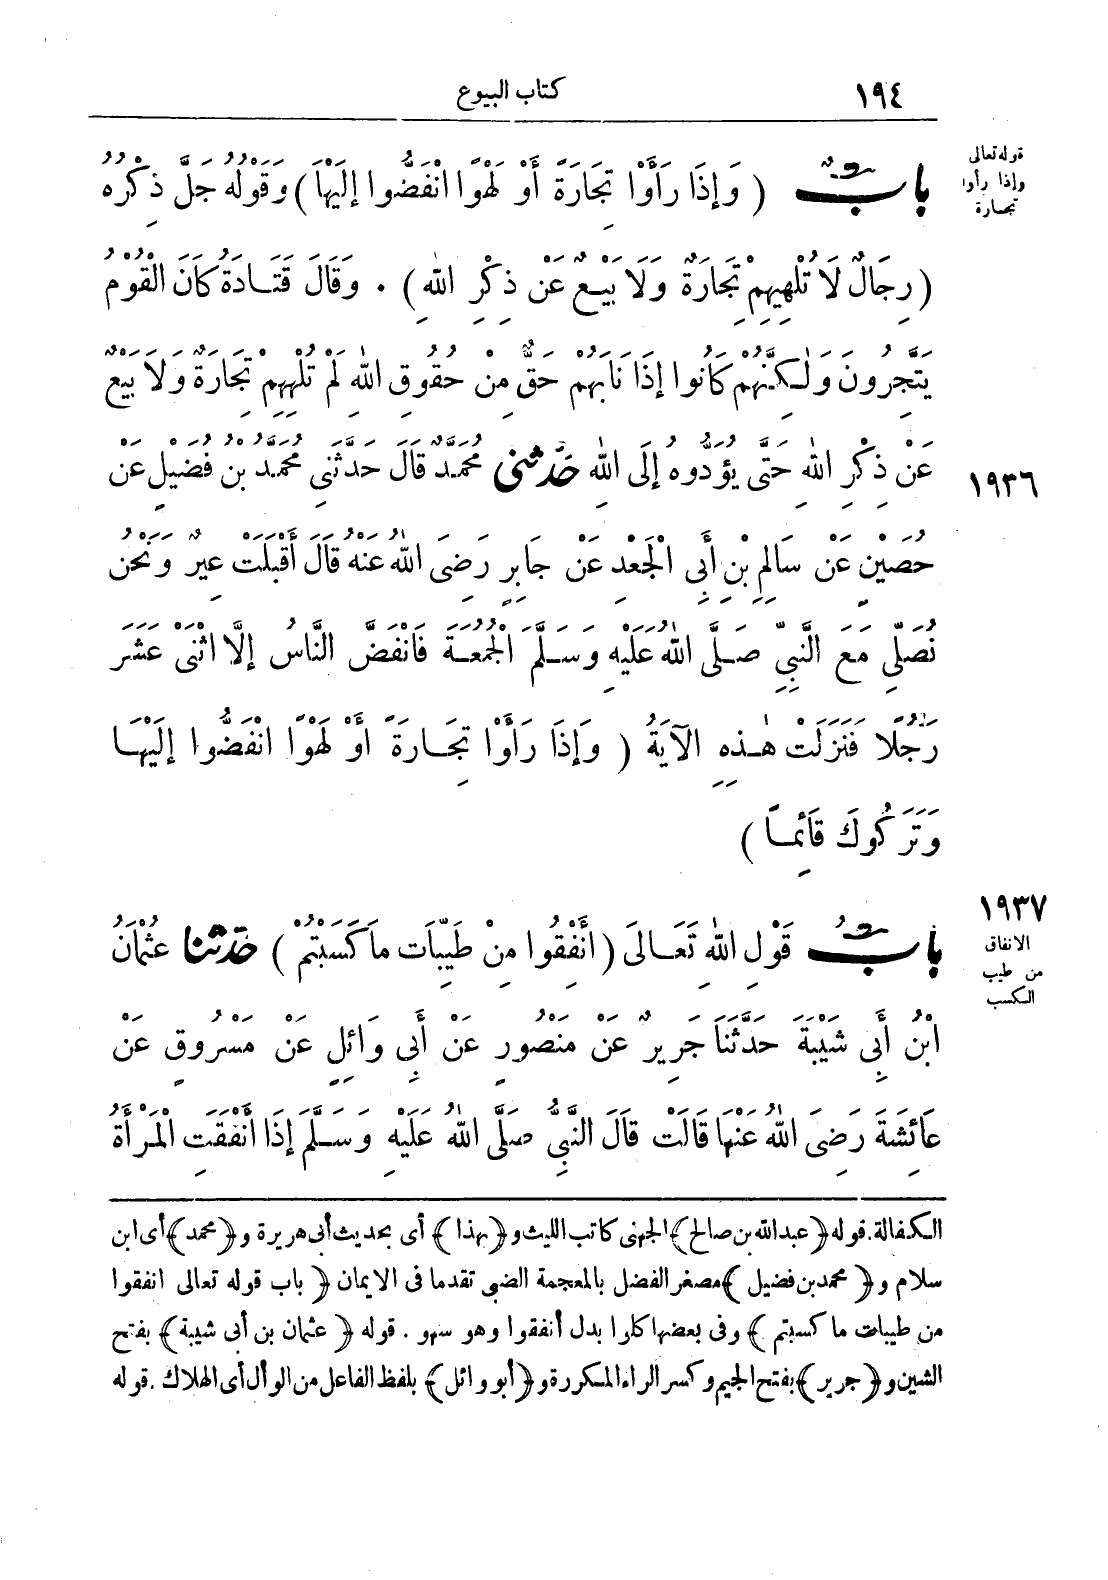 ١٩٤
كتاب البيوع
قوله تعالى
وإذا رأوا
تجارة
بابٌ ( وَإِذَا رَأَوْا تِجَارَةً أَوْ لَهْوًا انْفَضُّوا إِلَيْهَا ) وَقَوْلُهُ جَلَّ ذِكْرُهُ
( رِجَالٌ لَا تُلْهِيهِمْ تِجَارَةٌ وَلَا بَيْعٌ عَنْ ذِكْرِ اللّٰهِ ) . وَقَالَ قَتَادَةُ كَانَ الْقَوْمُ
يَتَّجِرُونَ وَلٰكِنَّهُمْ كَانُوا إِذَا نَابَهُمْ حَقٌّ مِنْ حُقُوقِ اللّٰهِ لَمْ تُلْهِهِمْ تِجَارَةٌ وَلَا بَيْعٌ
١٩٣٦
عَنْ ذِكْرِ اللّٰهِ حَتَّى يُؤَدُّوهُ إِلَى اللّٰهِ حَدَّثَنِي مُحَمَّدٌ قَالَ حَدَّثَنِي مُحَمَّدُ بْنُ فُضَيْلٍ عَنْ
حُصَيْنٍ عَنْ سَالِمِ بْنِ أَبِي الْجَعْدِ عَنْ جَابِرٍ رَضِيَ اللّٰهُ عَنْهُ قَالَ أَقْبَلَتْ عِيرٌ وَنَحْنُ
نُصَلِّي مَعَ النَّبِيِّ صَلَّى اللّٰهُ عَلَيْهِ وَسَلَّمَ الْجُمُعَةَ فَانْفَضَّ النَّاسُ إِلَّا اثْنَيْ عَشَرَ
رَجُلًا فَنَزَلَتْ هٰذِهِ الْآيَةُ ( وَإِذَا رَأَوْا تِجَارَةً أَوْ لَهْوًا انْفَضُّوا إِلَيْهَا
وَتَرَكُوكَ قَائِمًا )
١٩٣٧
الانفاق
من طيب
الكسب
بابُ قَوْلِ اللّٰهِ تَعَالَى ( أَنْفِقُوا مِنْ طَيِّبَاتِ مَا كَسَبْتُمْ ) حَدَّثَنَا عُثْمَانُ
ابْنُ أَبِي شَيْبَةَ حَدَّثَنَا جَرِيرٌ عَنْ مَنْصُورٍ عَنْ أَبِي وَائِلٍ عَنْ مَسْرُوقٍ عَنْ
عَائِشَةَ رَضِيَ اللّٰهُ عَنْهَا قَالَتْ قَالَ النَّبِيُّ صَلَّى اللّٰهُ عَلَيْهِ وَسَلَّمَ إِذَا أَنْفَقَتِ الْمَرْأَةُ
الكفالة. قوله ﴿ عبد الله بن صالح ﴾ الجهنى كاتب الليث و﴿ بهذا ﴾ أى بحديث أبى هريرة و﴿ محمد ﴾ أى ابن
سلام و﴿ محمد بن فضيل ﴾ مصغر الفضل بالمعجمة الضبى تقدما فى الايمان ﴿ باب قوله تعالى انفقوا
من طيبات ما كسبتم ﴾ وفى بعضها كلوا بدل أنفقوا وهو سهو . قوله ﴿ عثمان بن أبى شيبة ﴾ بفتح
الشين و﴿ جرير ﴾ بفتح الجيم وكسر الراء المكررة و﴿ أبو وائل ﴾ بلفظ الفاعل من الوأل أى الهلاك . قوله